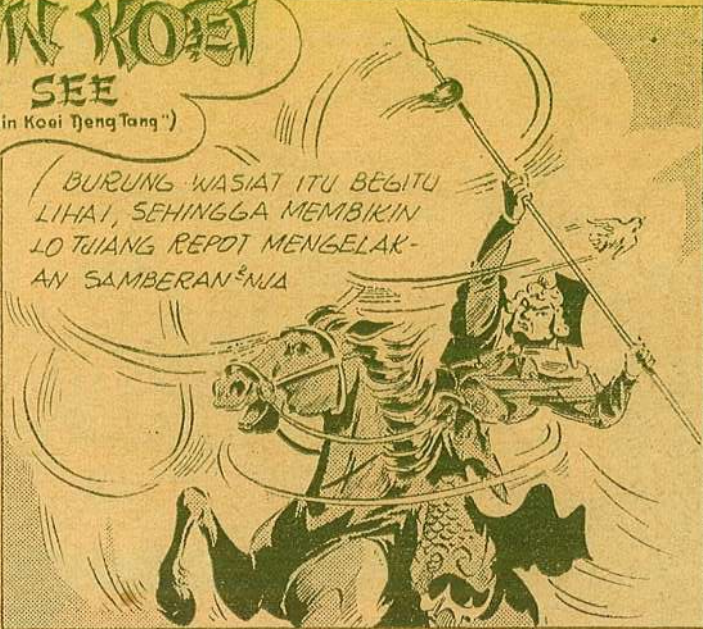 IN KOEI
SEE
in Koei Tjeng Tang")
BURUNG WASIAT ITU BEGITU
LIHAI, SEHINGGA MEMBIKIN
LO TJIANG REPOT MENGELAK-
AN SAMBERAN²NJA